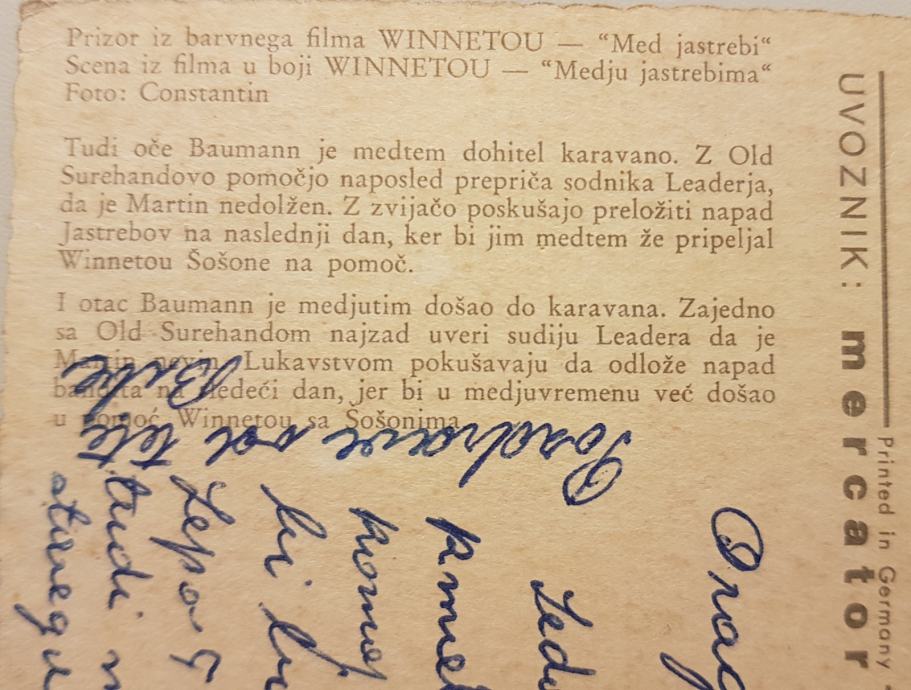 Prizor iz barvnega filma WINNETOU — “Med jastrebi“
Scena iz filma u boji WINNETOU — “Medju jastrebima“
Foto: Constantin
Tudi oče Baumann je medtem dohitel karavano. Z Old
Surehandovo pomočjo naposled prepriča sodnika Leaderja,
da je Martin nedolžen. Z zvijačo poskušajo preložiti napad
Jastrebov na naslednji dan, ker bi jim medtem že pripeljal
Winnetou Šošone na pomoč.
I otac Baumann je medjutim došao do karavana. Zajedno
sa Old Surehandom najzad uveri sudiju Leadera da je
Martin nevin. Lukavstvom pokušavaju da odlože napad
bandita na sledeći dan, jer bi u medjuvremenu već došao
u pomoć Winnetou sa Šošonima.
UVOZNIK: mercator
Printed in Germany
Pozdrave od tete
Lepo
tudi